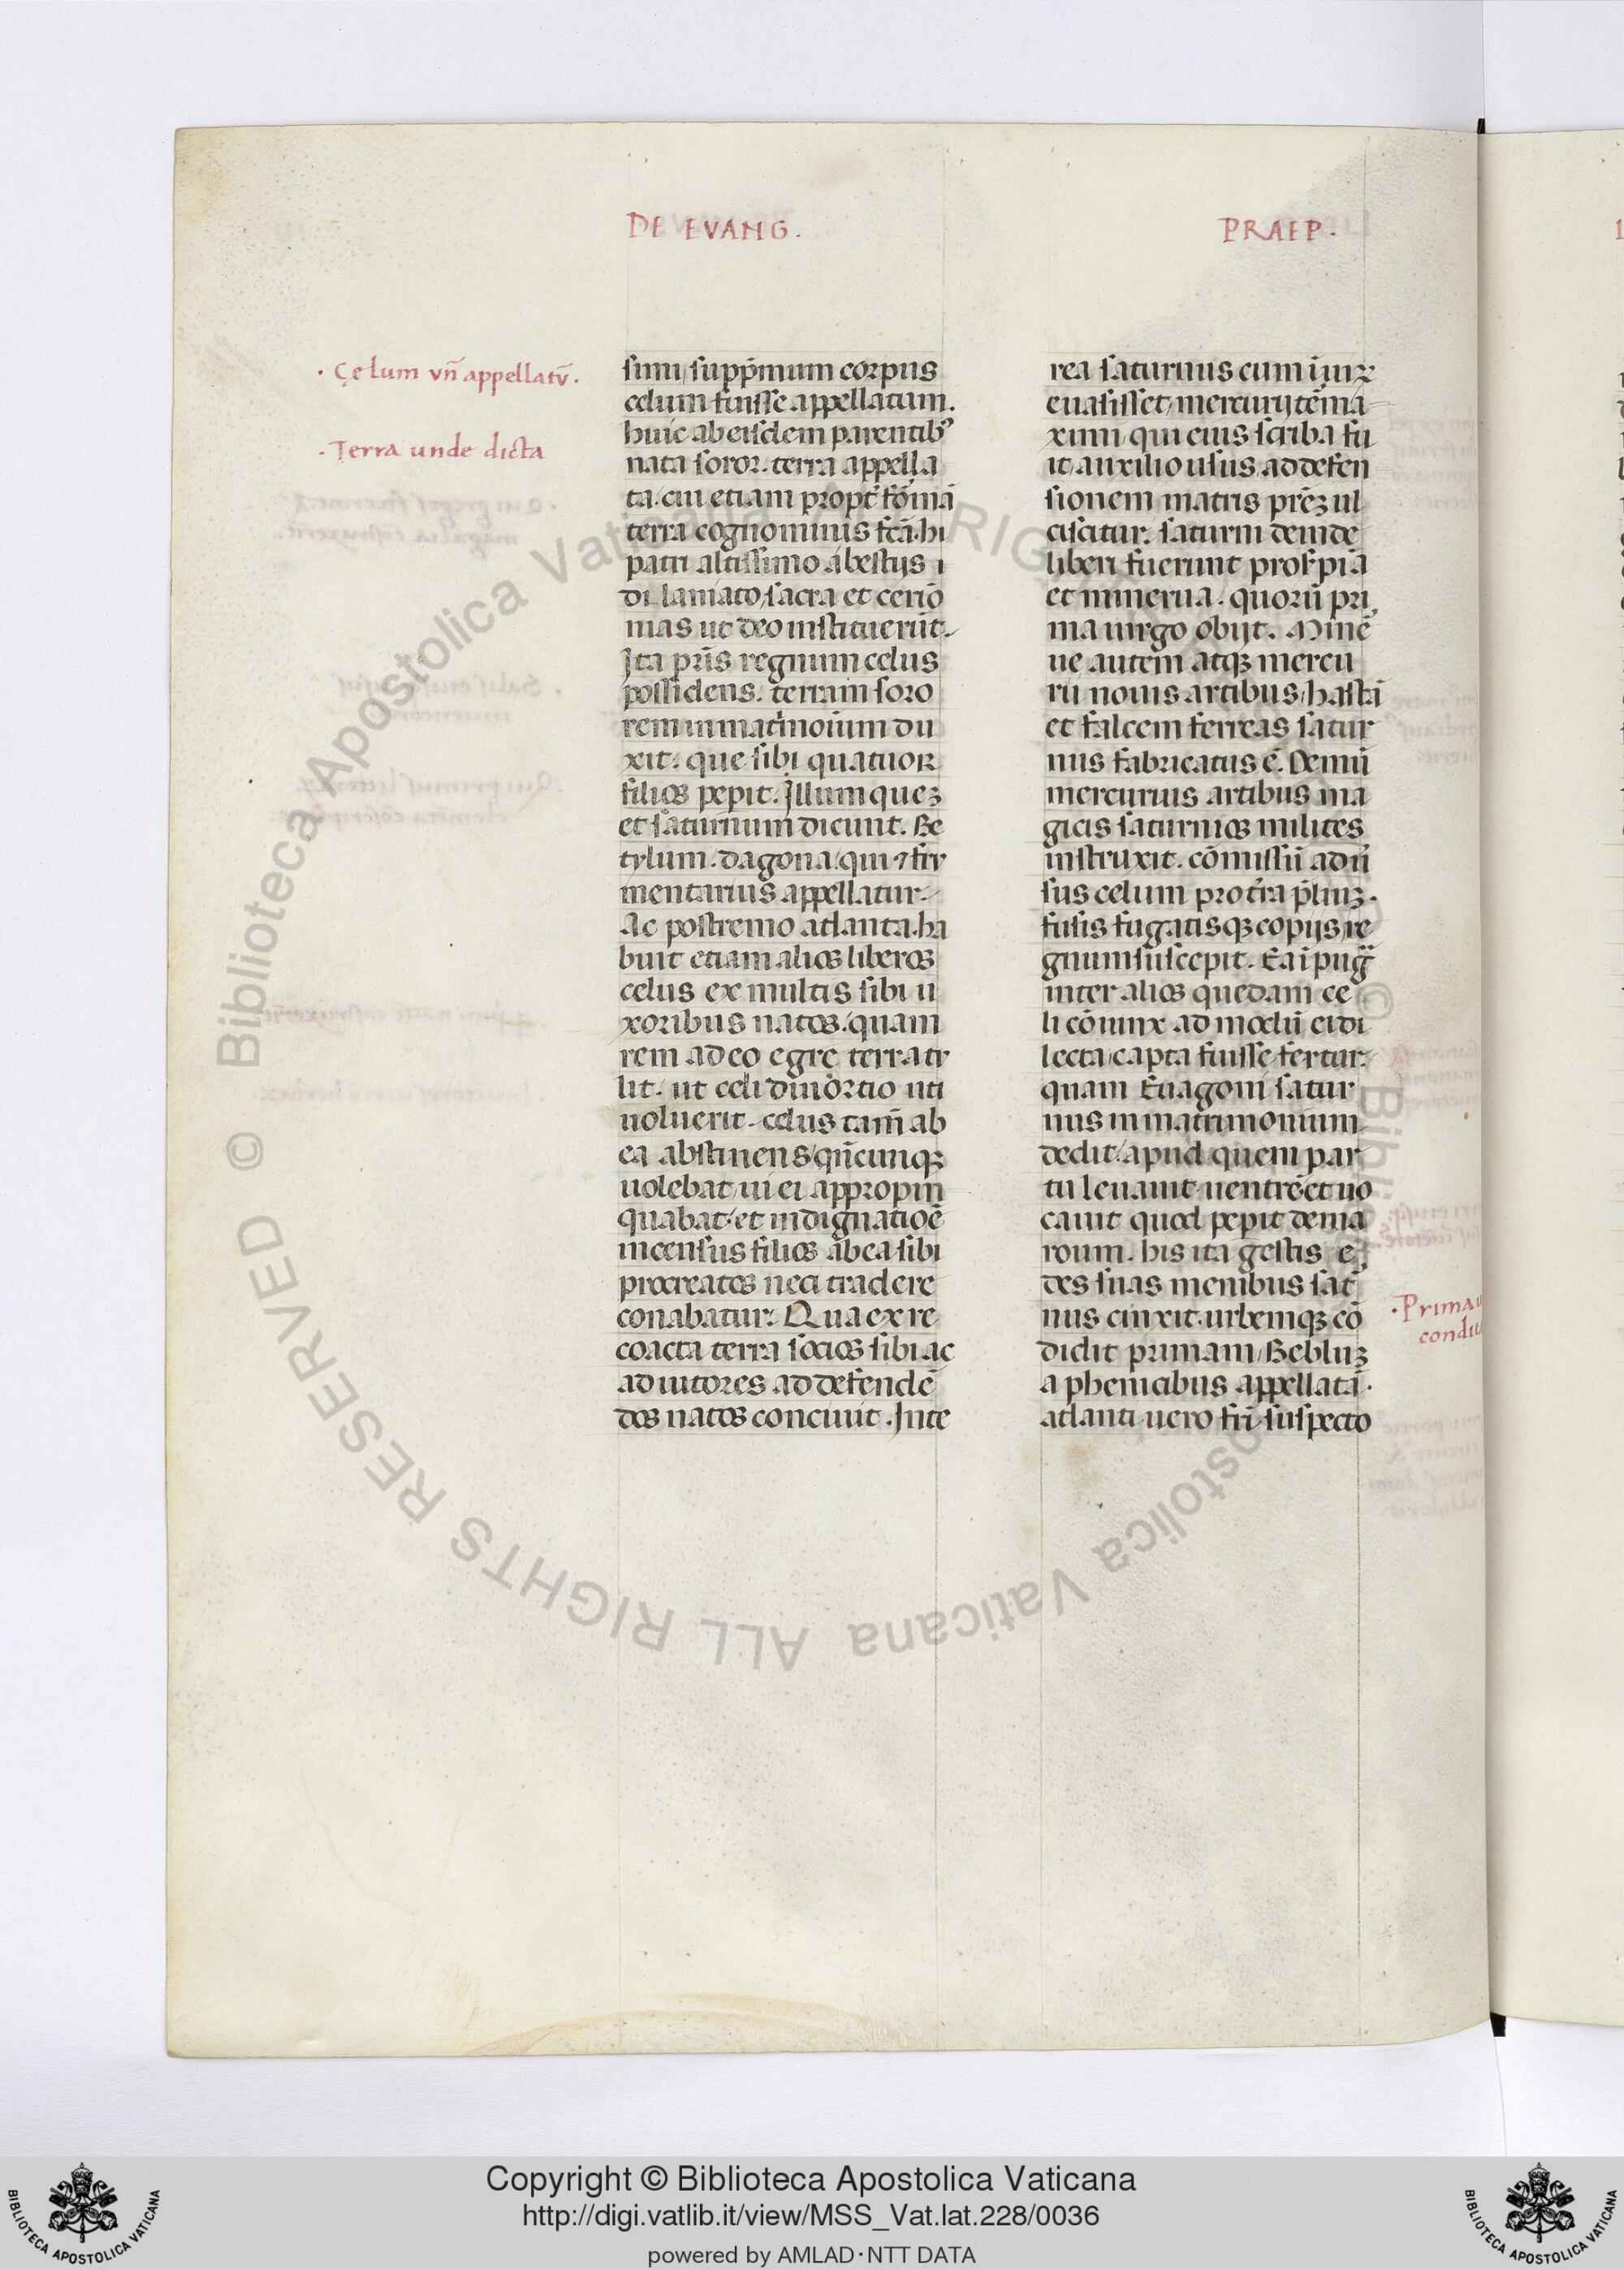 DE EVANG.
PRAEP.
· Çelum vn̄ appellatū.
· Terra unde dicta
sim, supp̄mum corpus
celum fuisse appellatum.
huic ab eisdem parentibꝰ
nata soror. terra appella
ta. cui etiam propt̄ fōmā
terra cognominis fc̄ā. hi
patri altissimo a bestijs
di laniato, sacra et cerīō
nias ut deo instituerūt.
Ita pr̄is regnum celus
possidens. terram soro
rem in mat̄moīum du
xit. que sibi quatuor
filios pepit. Illum queꝫ
et saturnum dicunt. Be
tylum. dagona. qui ⁊ fru
mentarius appellatur.
Ac postremo atlanta. ha
buit etiam alios liberos
celus ex multis sibi u
xoribus natos. quam
rem adeo egre terra tu
lit. ut celi diuortio uti
uoluerit. celus tam̄ ab
ea abstinens, qn̄cunqꝫ
uolebat ui ei appropin
quabat. et indignatiōe
incensus filios ab ea sibi
procreatos neci tradere
conabatur. Qua ex re
coacta terra socios sibi ac
adiutores ad defendē
dos natos conciuit. Inte
rea saturnus cum
euasisset, mercurij
ximi, qui eius scriba fu
it, auxilio usus, ad defen
sionem matris prēꝫ ul
ciscitur. saturni deinde
liberi fuerunt prosꝑpīa
et minerua. quorū pri
ma uirgo obijt. Minē
ue autem atqꝫ mercu
rij nouis artibus, hastā
et falcem ferreas satur
nus fabricatus ē. Demū
mercurius artibus ma
gicis saturnios milites
instruxit. cōmissū adū
sus celum pro t̄ra p̄liuꝫ.
fusis fugatisqꝫ copijs, re
gnum suscepit. Ea ī puḡ
inter alios quedam ce
li cōiunx ad modū ei di
lecta, capta fuisse fertur.
quam Euagoni satur
nus in matrimonium
dedit. apud quem par
tu leuauit uentrē. et uo
cauit quod pepit dema
roum. his ita gestis e
des suas menibus sat̄
nus cinxit. urbemqꝫ cō
didit primam, Bebluꝫ
a phenicibus appellatā.
atlanti uero fr̄i suspecto
· Prima
condit
© Biblioteca Apostolica Vaticana ALL RIGHTS RESERVED
Copyright © Biblioteca Apostolica Vaticana
http://digi.vatlib.it/view/MSS_Vat.lat.228/0036
powered by AMLAD·NTT DATA
BIBLIOTECA APOSTOLICA VATICANA
BIBLIOTECA APOSTOLICA VATICANA